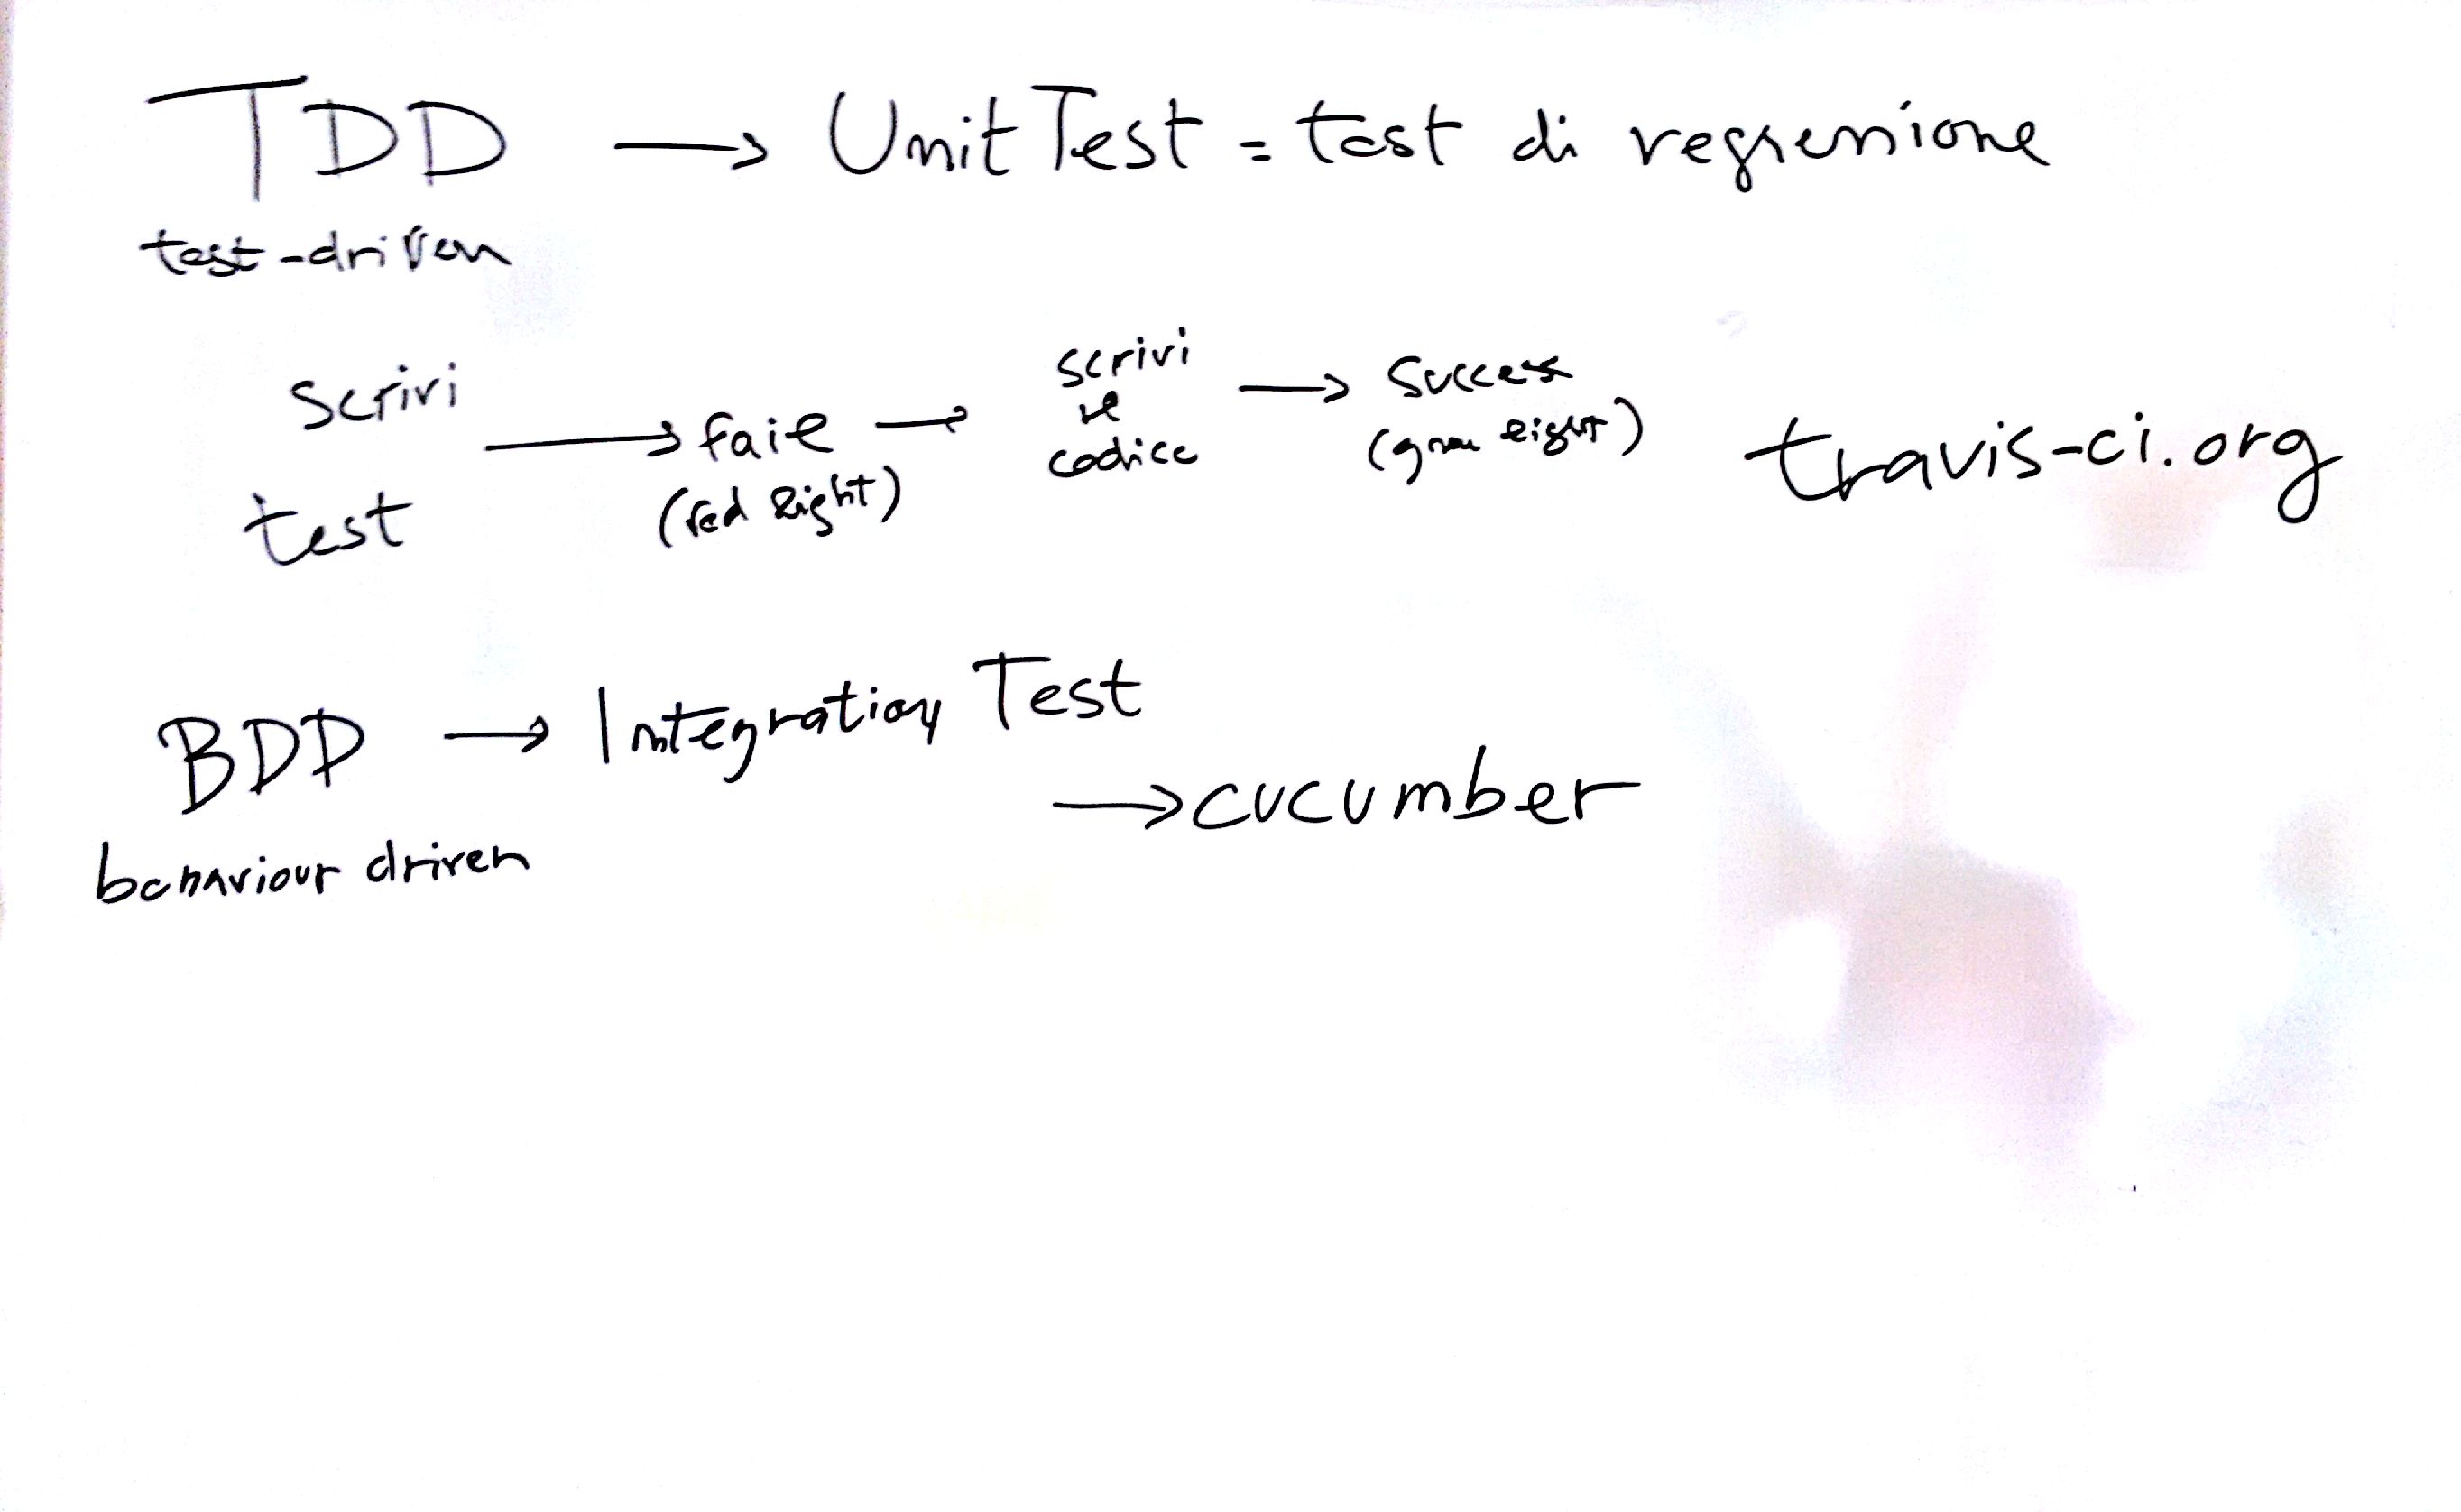 TDD → Unit Test = test di regressione
test-driven
scrivi test → fail (red light) → scrivi il codice → success (green light)
travis-ci.org
BDD → Integration Test
→ cucumber
behaviour driven